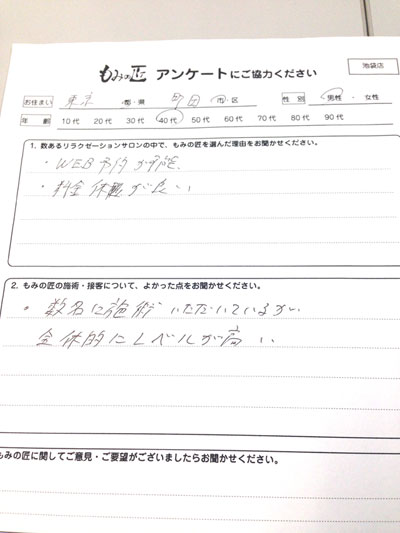 池袋店
もみの匠 アンケートにご協力ください
お住まい 東京 都・県 町田 市・区 性別 男性・女性
年齢 10代 20代 30代 40代 50代 60代 70代 80代 90代
1. 数あるリラクゼーションサロンの中で、もみの匠を選んだ理由をお聞かせください。
・WEB予約が可能、
・料金体系が良い
2. もみの匠の施術・接客について、よかった点をお聞かせください。
・数名に施術いただいているが、
全体的にレベルが高い
もみの匠に関してご意見・ご要望がございましたらお聞かせください。